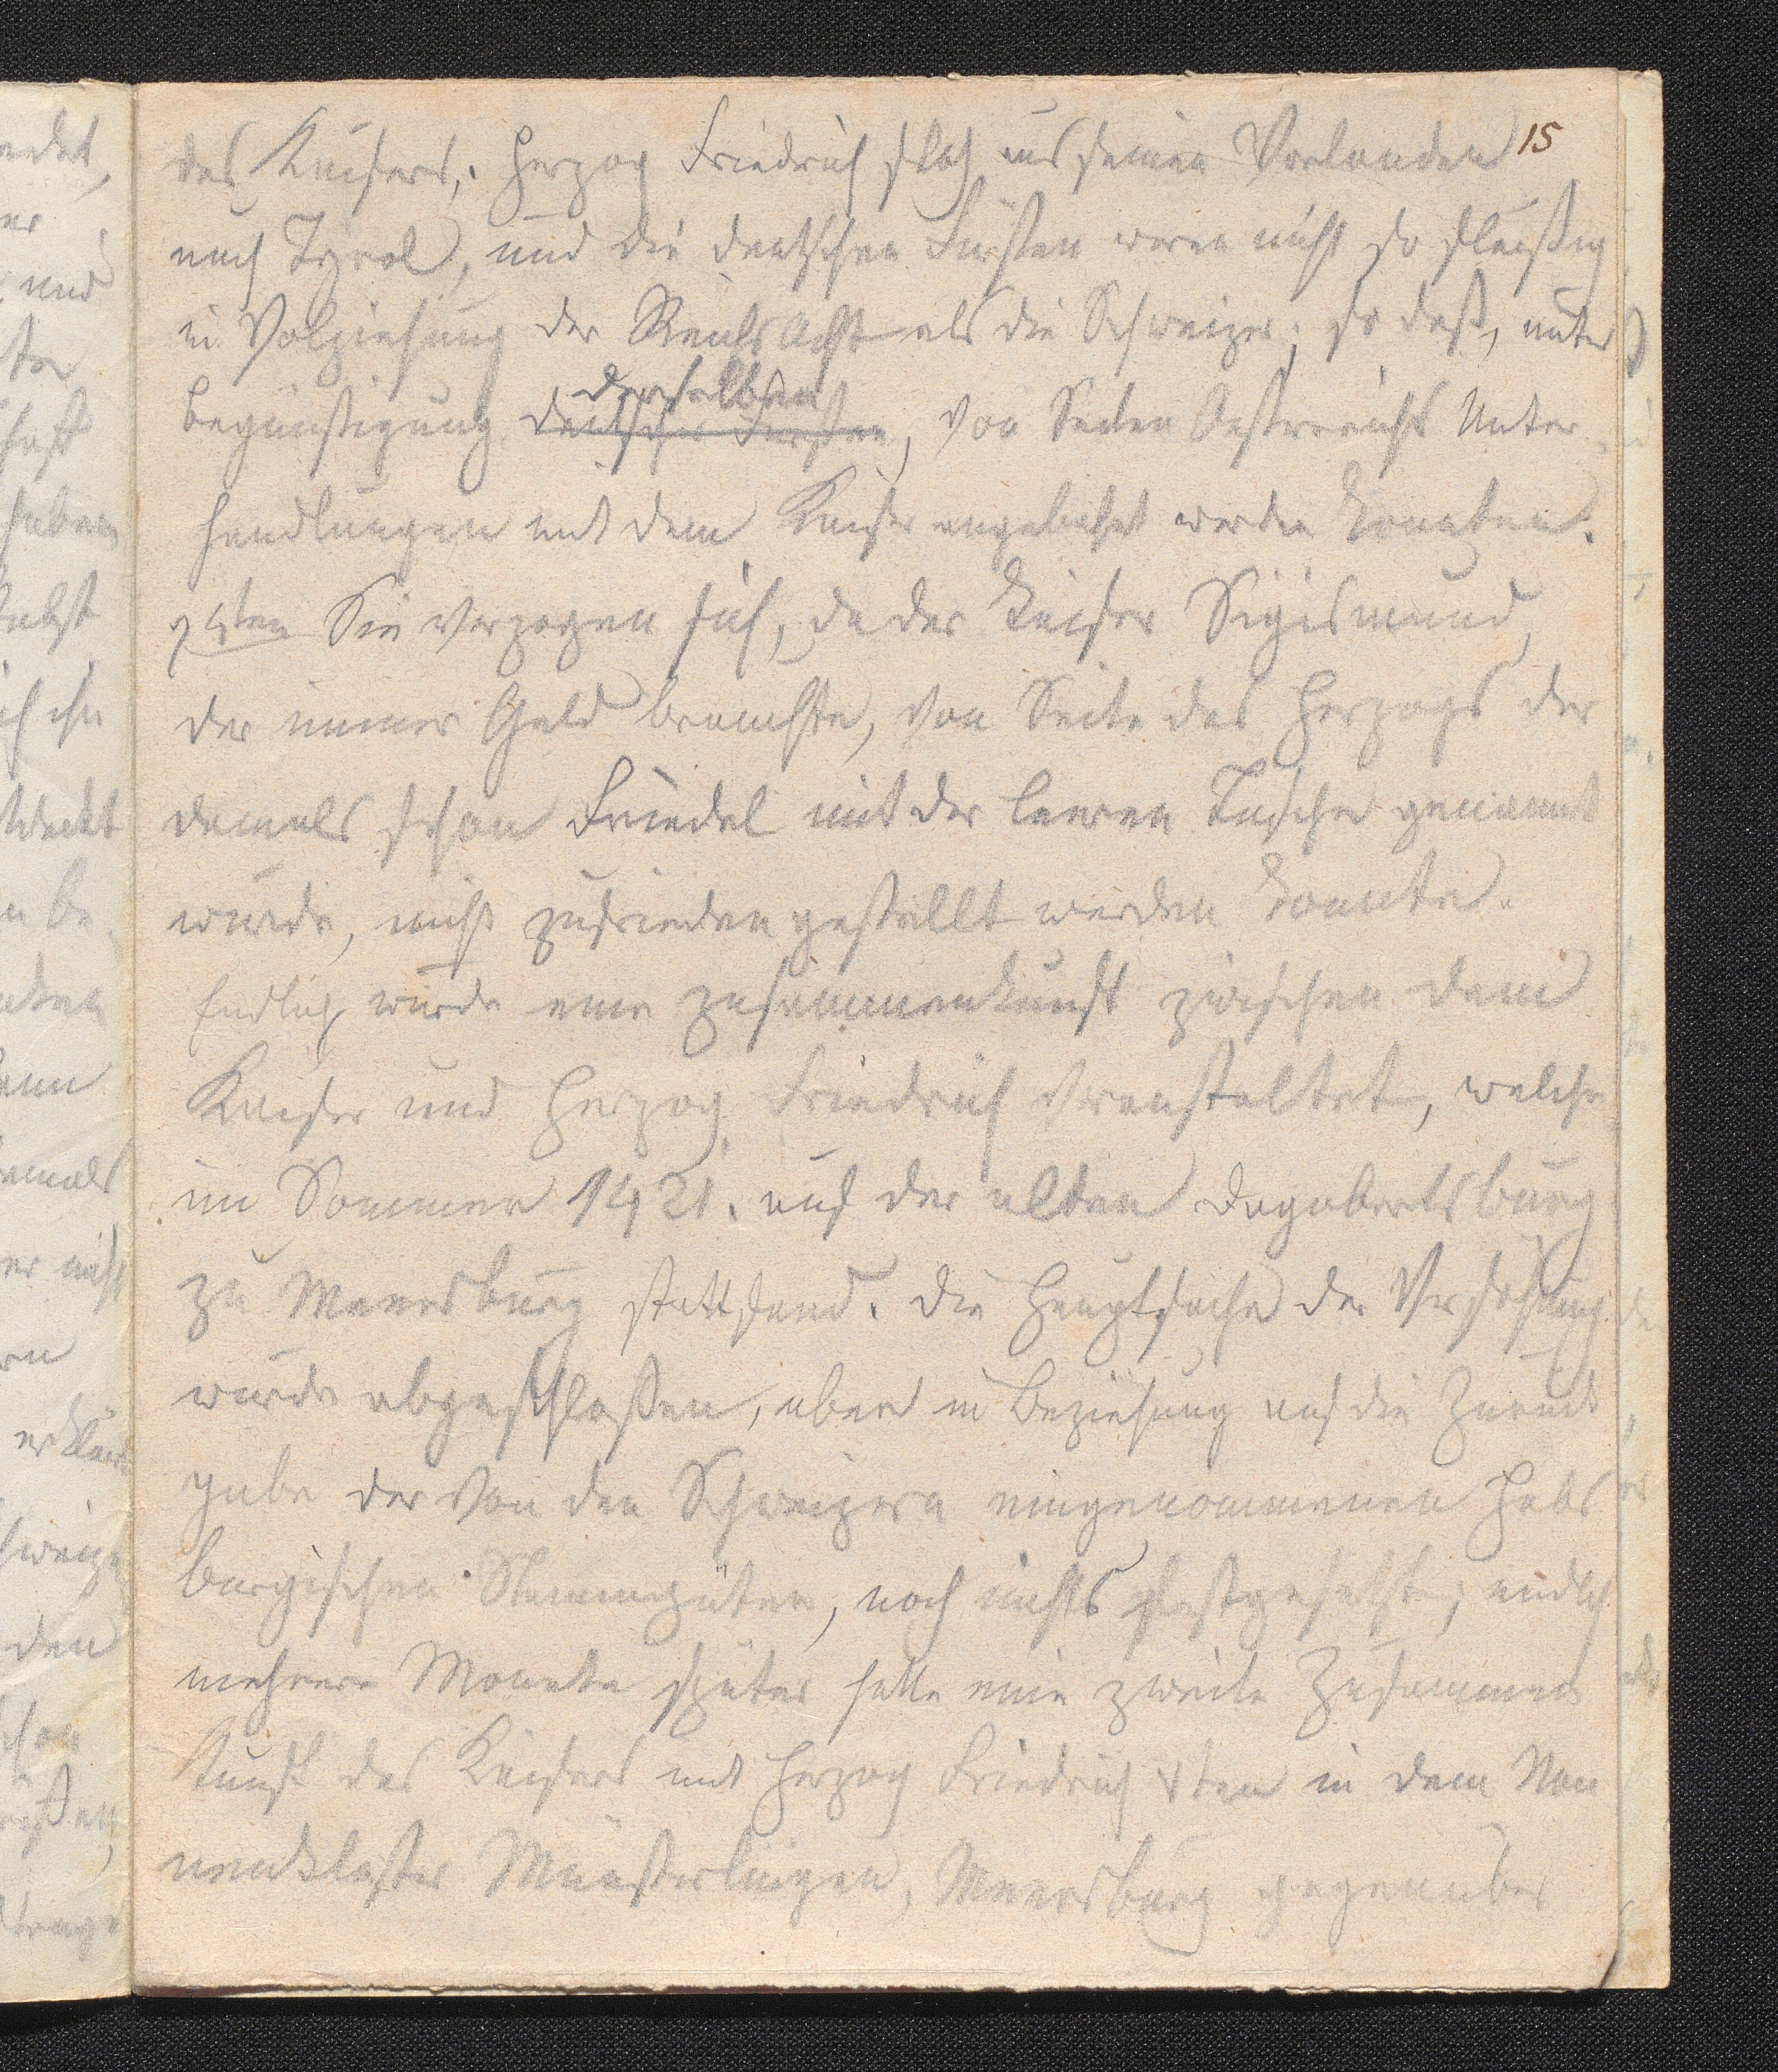 15
des Kaisers; Herzog Friedrich floh aus seinen Vorlanden
nach Tyrol, und die deutschen Fürsten waren nicht so fleißig
in Volziehung der Reichs Acht als die Schweizer; so daß, unter
Begünstigung deutscher Fürsten, von Seiten Oestreichs Unter
derselben
handlungen mit dem Kaiser angebahnt werden konnten.
Sie verzogen sich, da der Kaiser Sigismund,
der immer Geld brauchte, von Seite des Herzogs der
damals schon Friedel mit der leeren Tasche genannt
wurde, nicht zufrieden gestellt werden konnte.
Endlich wurde eine Zusammenkunft zwischen dem
Kaiser und Herzog Friedrich veranstaltet, welche
im Sommer 1421. auf der alten Dagobertsburg
zu Meersburg stattfand. Die Hauptsache der Versöhnung
wurde abgeschlossen, aber in Beziehung auf die Zurück
gabe der von den Schweizern eingenommenen Habs
burgischen Stammgüter, noch nichts festgesetzt; endlich
mehrere Monate später hatte eine zweite Zusammen
kunft des Kaisers mit Herzog Friedrich 4ten in dem Non
nenkloster Münsterlingen, Meersburg gegenüber